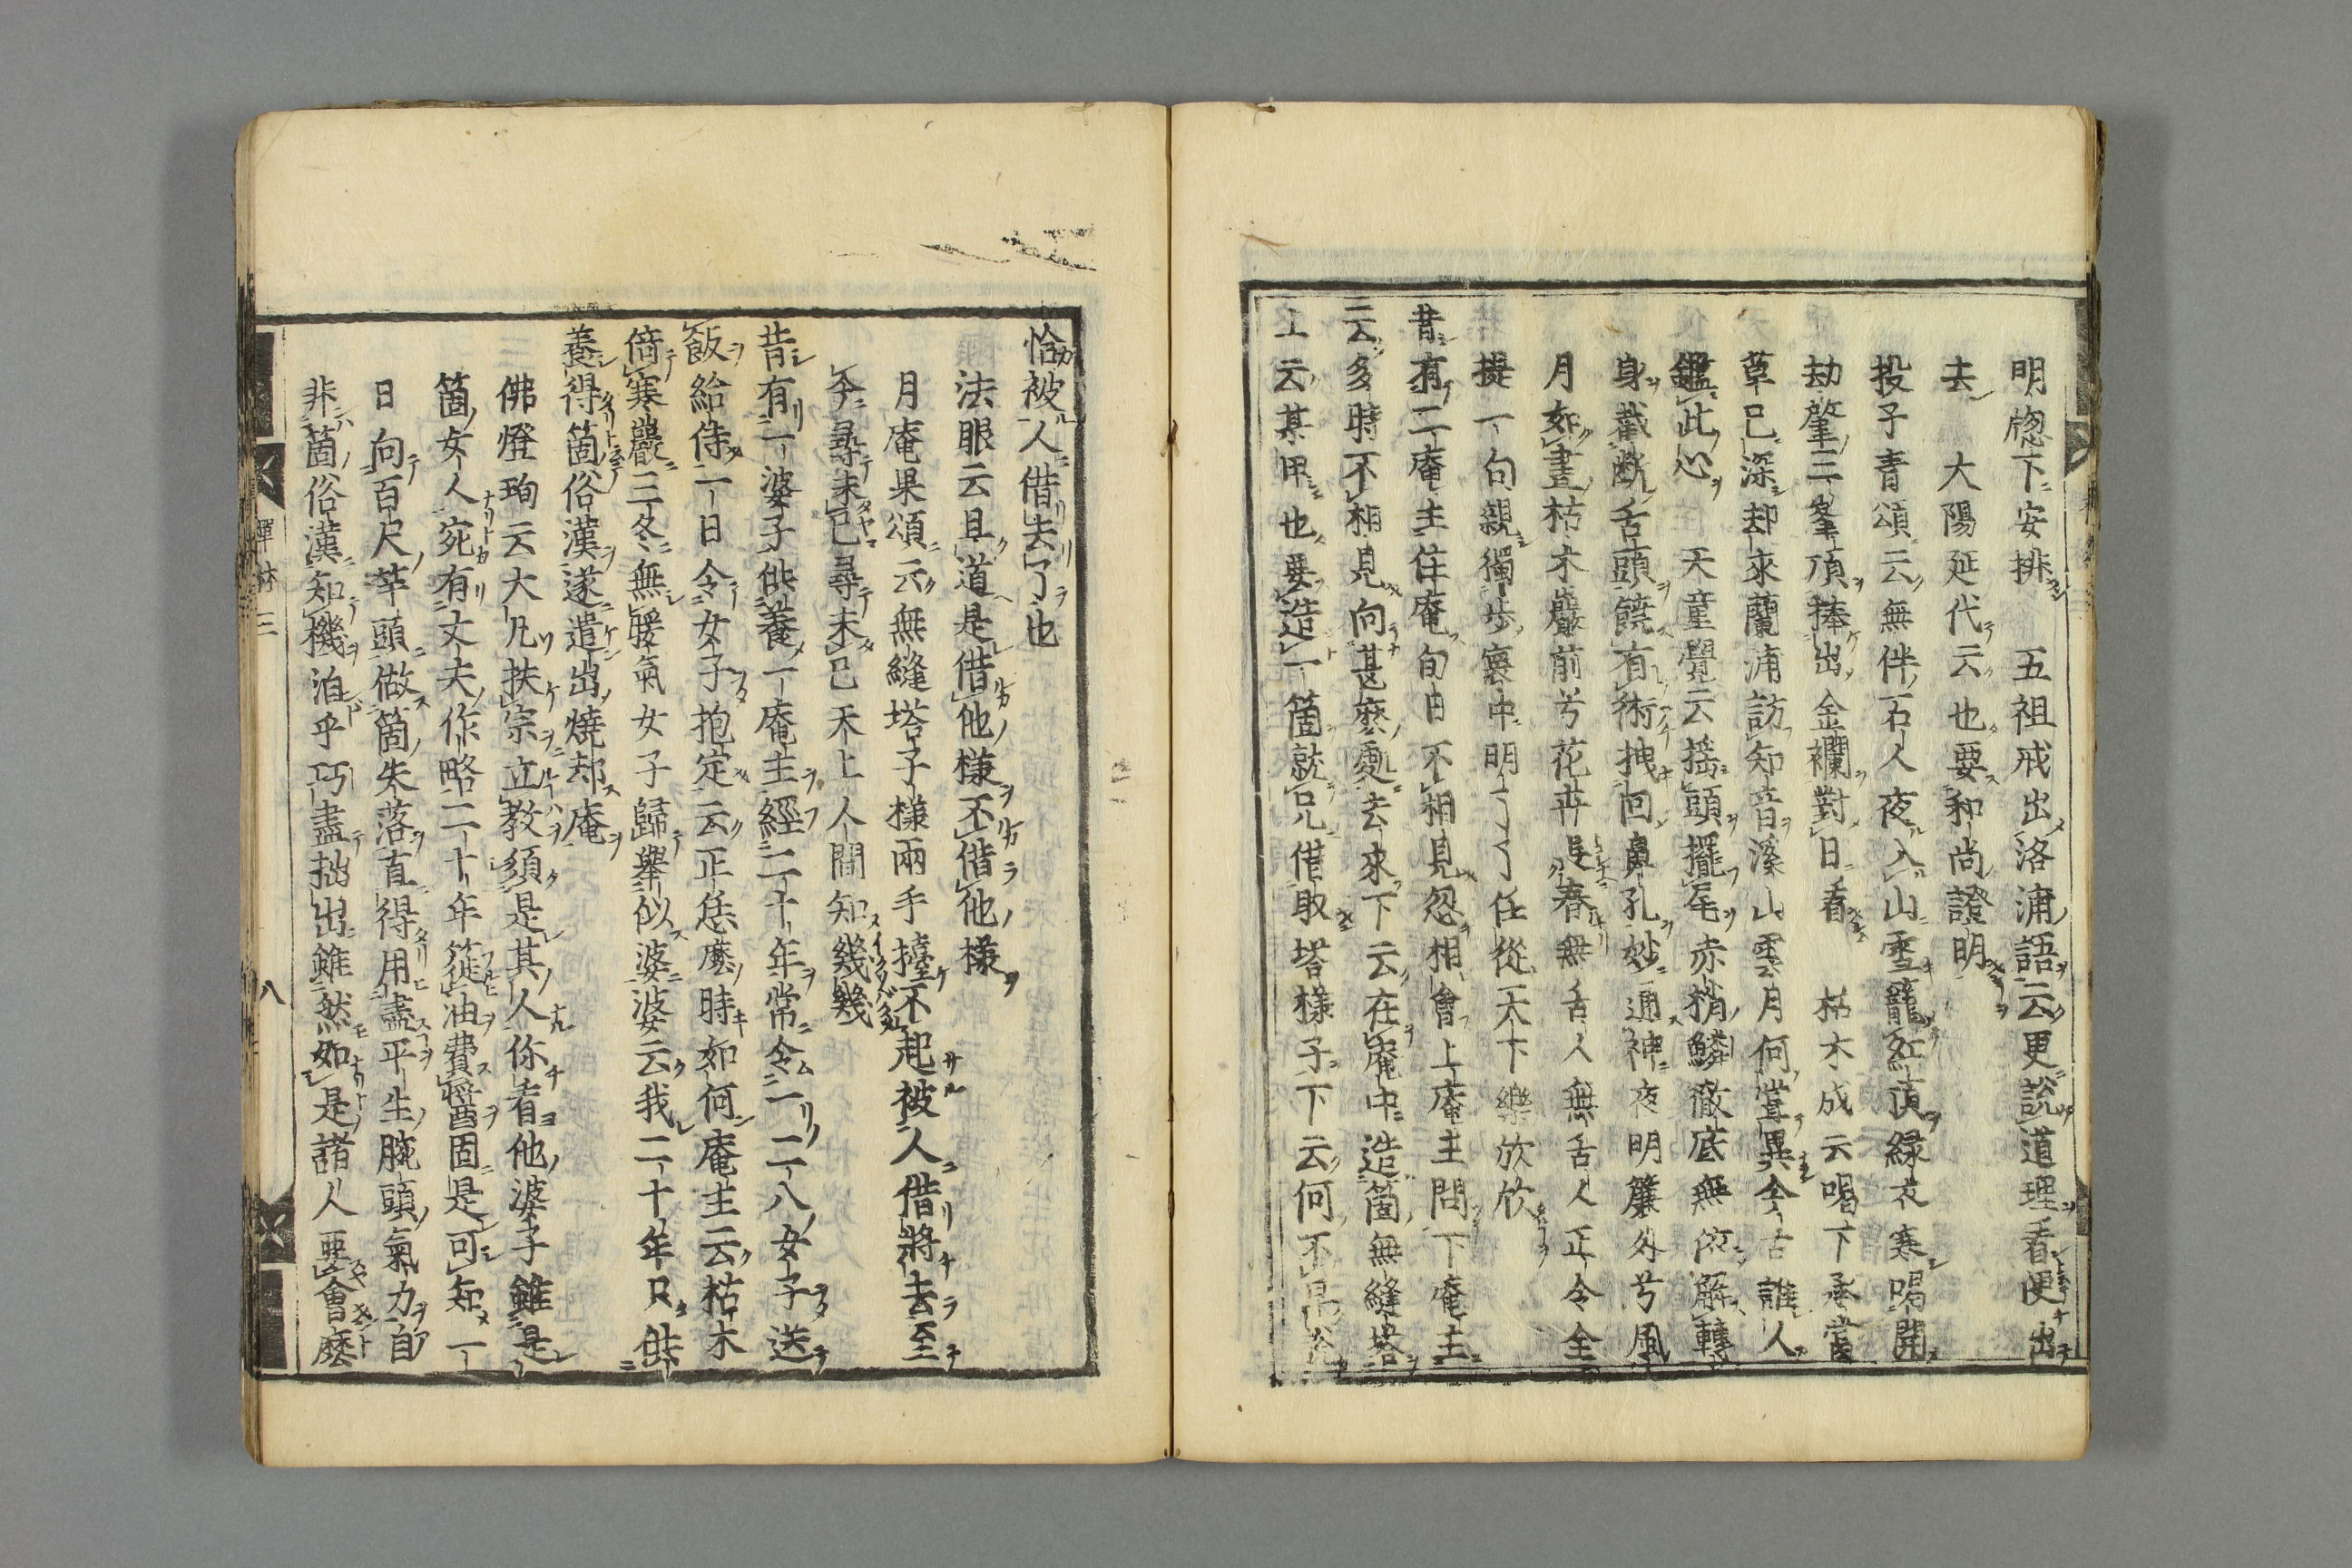 明牕下安排　五祖戒出洛浦語云更説道理看便出
去　大陽延代云也要和尚證明
投子青頌云無伴石人夜入山雪籠紅頂緑衣寒喝開
劫肇三峯頂捧出金襴對日看　枯木成云喝下承當
草已深却來蘭浦訪知音溪山雲月何甞異今古誰人
鑑此心　天童覺云揺頭擺尾赤梢鱗徹底無依解轉
身截断舌頭饒有術拽回鼻孔妙通神夜明簾外兮風
月如晝枯木巖前兮花卉長春無舌人無舌人正令全
提一句親獨歩寰中明了了任從天下樂欣欣
昔有二庵主住庵旬日不相見忽相會上庵主問下庵主
云多時不相見向甚麽處去來下云在庵中造箇無縫塔
上云某甲也要造一箇就兄借取塔樣子下云何不早道
恰被人借去了也
法眼云且道是借他樣不借他樣
月庵果頌云無縫塔子樣兩手擡不起被人借將去至
今尋未已尋未已天上人間知幾幾
昔有一婆子供養一庵主經二十年常令一二八女子送
飯給侍一日令女子抱定云正恁麽時如何庵主云枯木
倚寒巖三冬無暖氣女子歸舉似婆婆云我二十年只供
養得箇俗漢遂遣出燒却庵
佛燈珣云大凡扶宗立教須是其人你看他婆子雖是
箇女人宛有丈夫作略二十年簁油費醬固是可知一
日向百尺竿頭做箇失落直得用盡平生腕頭氣力自
非箇俗漢知機洎乎巧盡拙出雖然如是諸人要會麽
禪林三
八